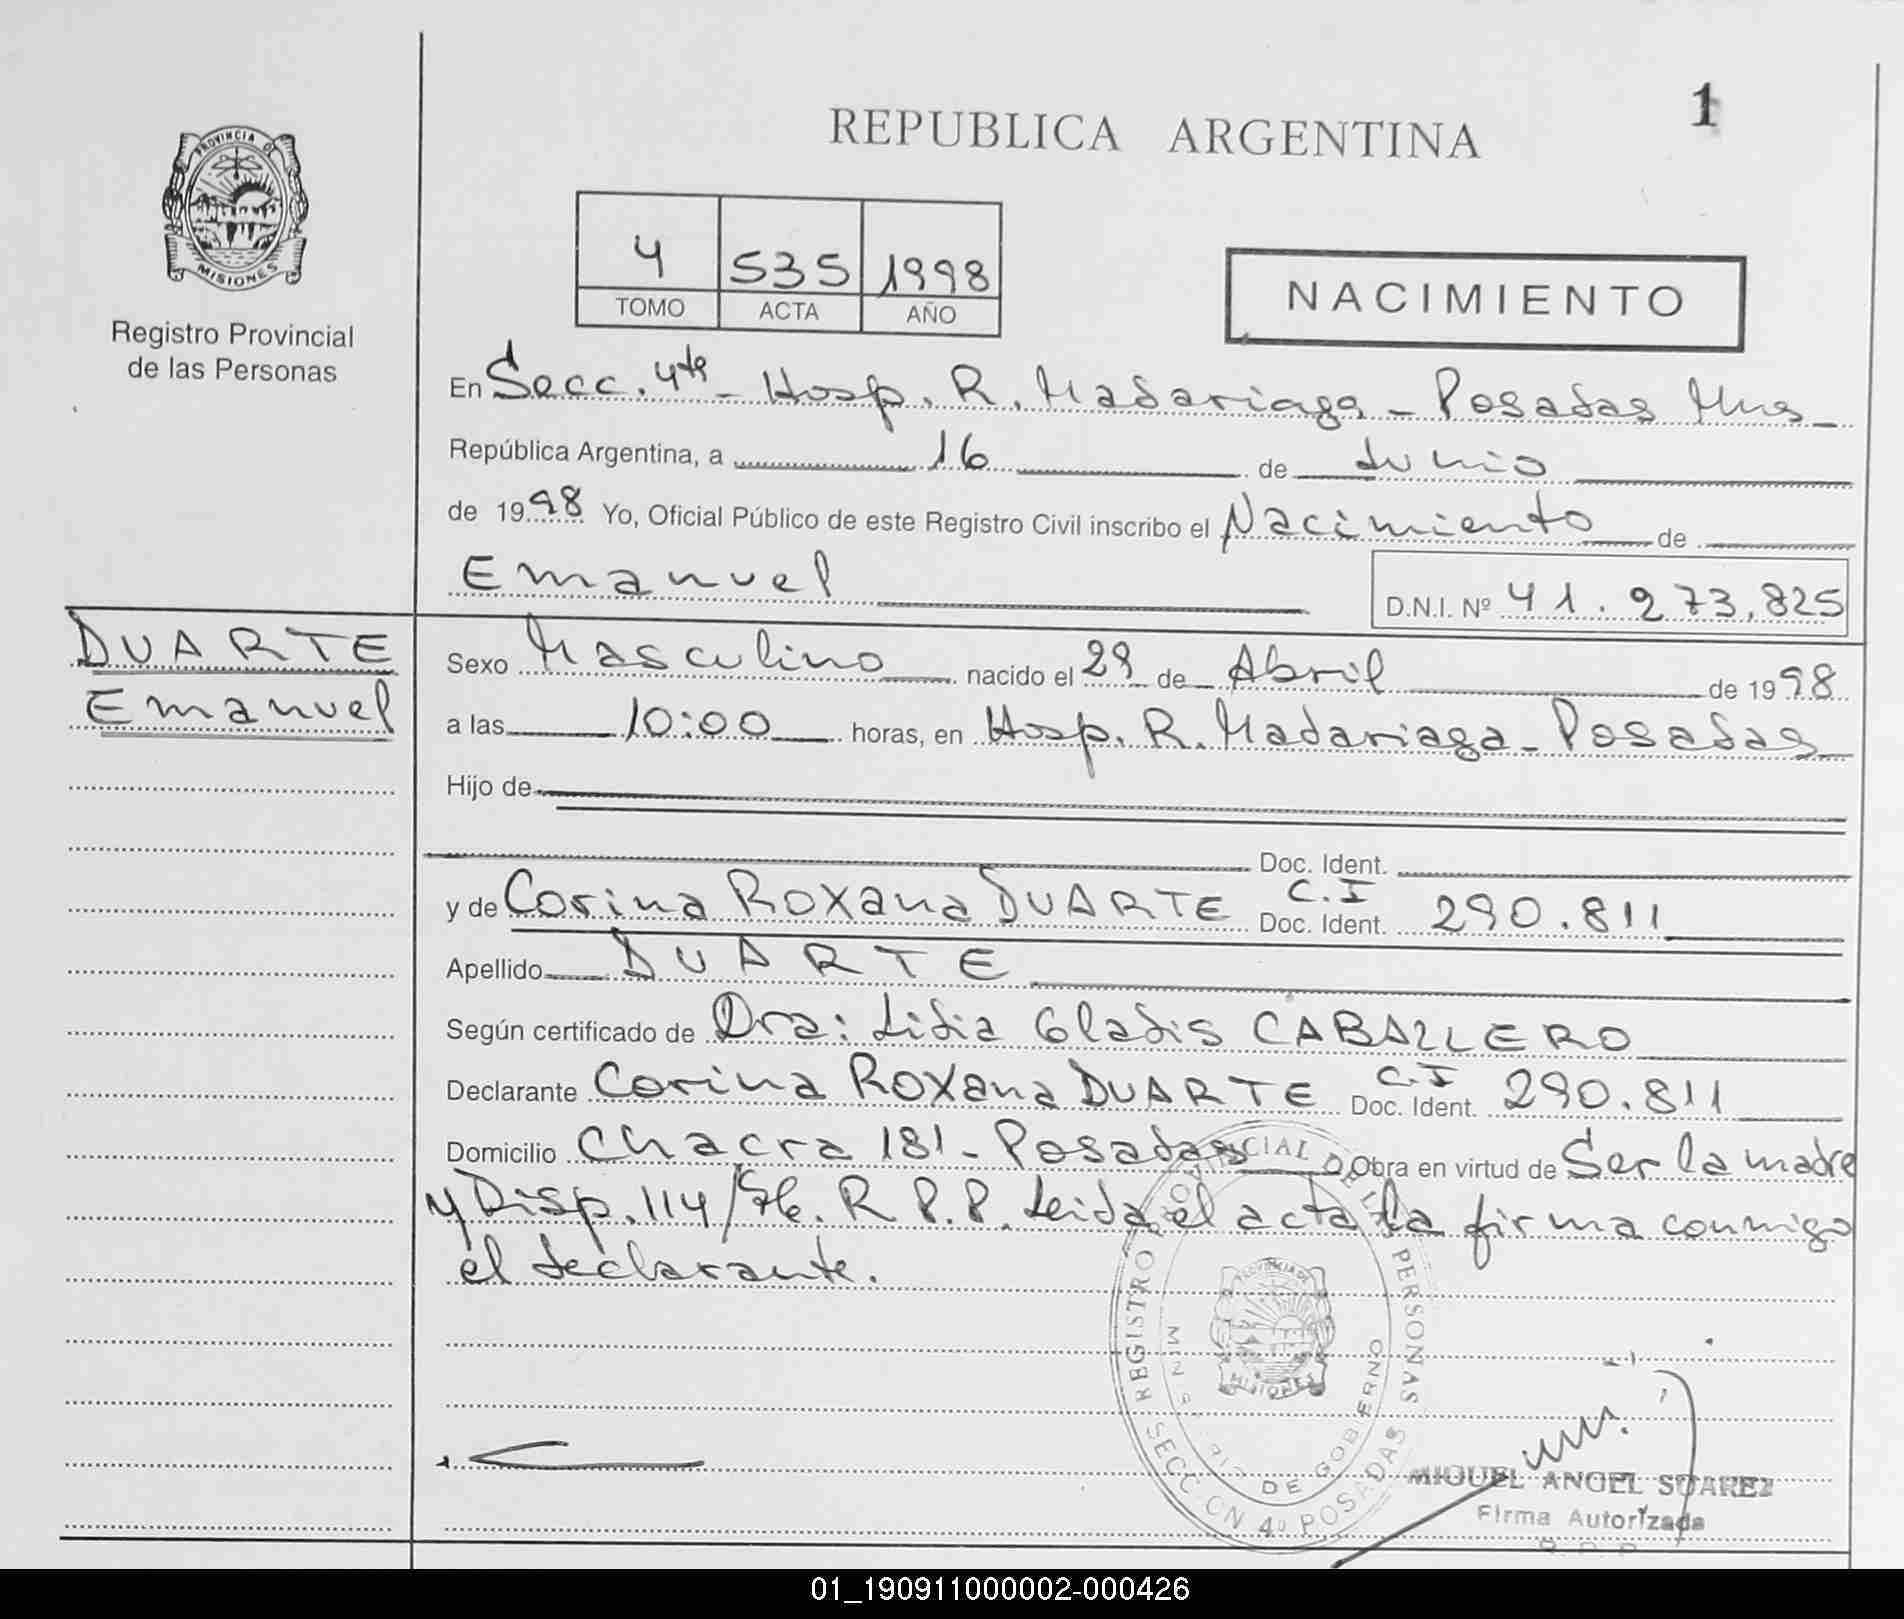 REPUBLICA ARGENTINA
1
PROVINCIA DE
MISIONES
Registro Provincial
de las Personas
4 535 1998
TOMO ACTA AÑO
NACIMIENTO
En Secc. 4ta - Hosp. R. Madariaga - Posadas Mnes
República Argentina, a 16 de Junio
de 1998 Yo, Oficial Público de este Registro Civil inscribo el Nacimiento de
Emanuel D.N.I. Nº 41.273.825
DUARTE
Emanuel
Sexo Masculino nacido el 29 de Abril de 1998
a las 10:00 horas, en Hosp. R. Madariaga - Posadas
Hijo de
Doc. Ident.
y de Corina Roxana DUARTE C.I Doc. Ident. 290.811
Apellido DUARTE
Según certificado de Dra: Lidia Gladis CABALLERO
Declarante Corina Roxana DUARTE C.I Doc. Ident. 290.811
Domicilio Chacra 181 - Posadas Obra en virtud de Ser la madre
y Disp. 114/96. R.P.P. Leida el acta la firma conmigo
el declarante.
REGISTRO PROVINCIAL DE LAS PERSONAS
DE GOBIERNO
SECCION 4º POSADAS
MISIONES
MIGUEL ANGEL SUAREZ
Firma Autorizada
01_190911000002-000426